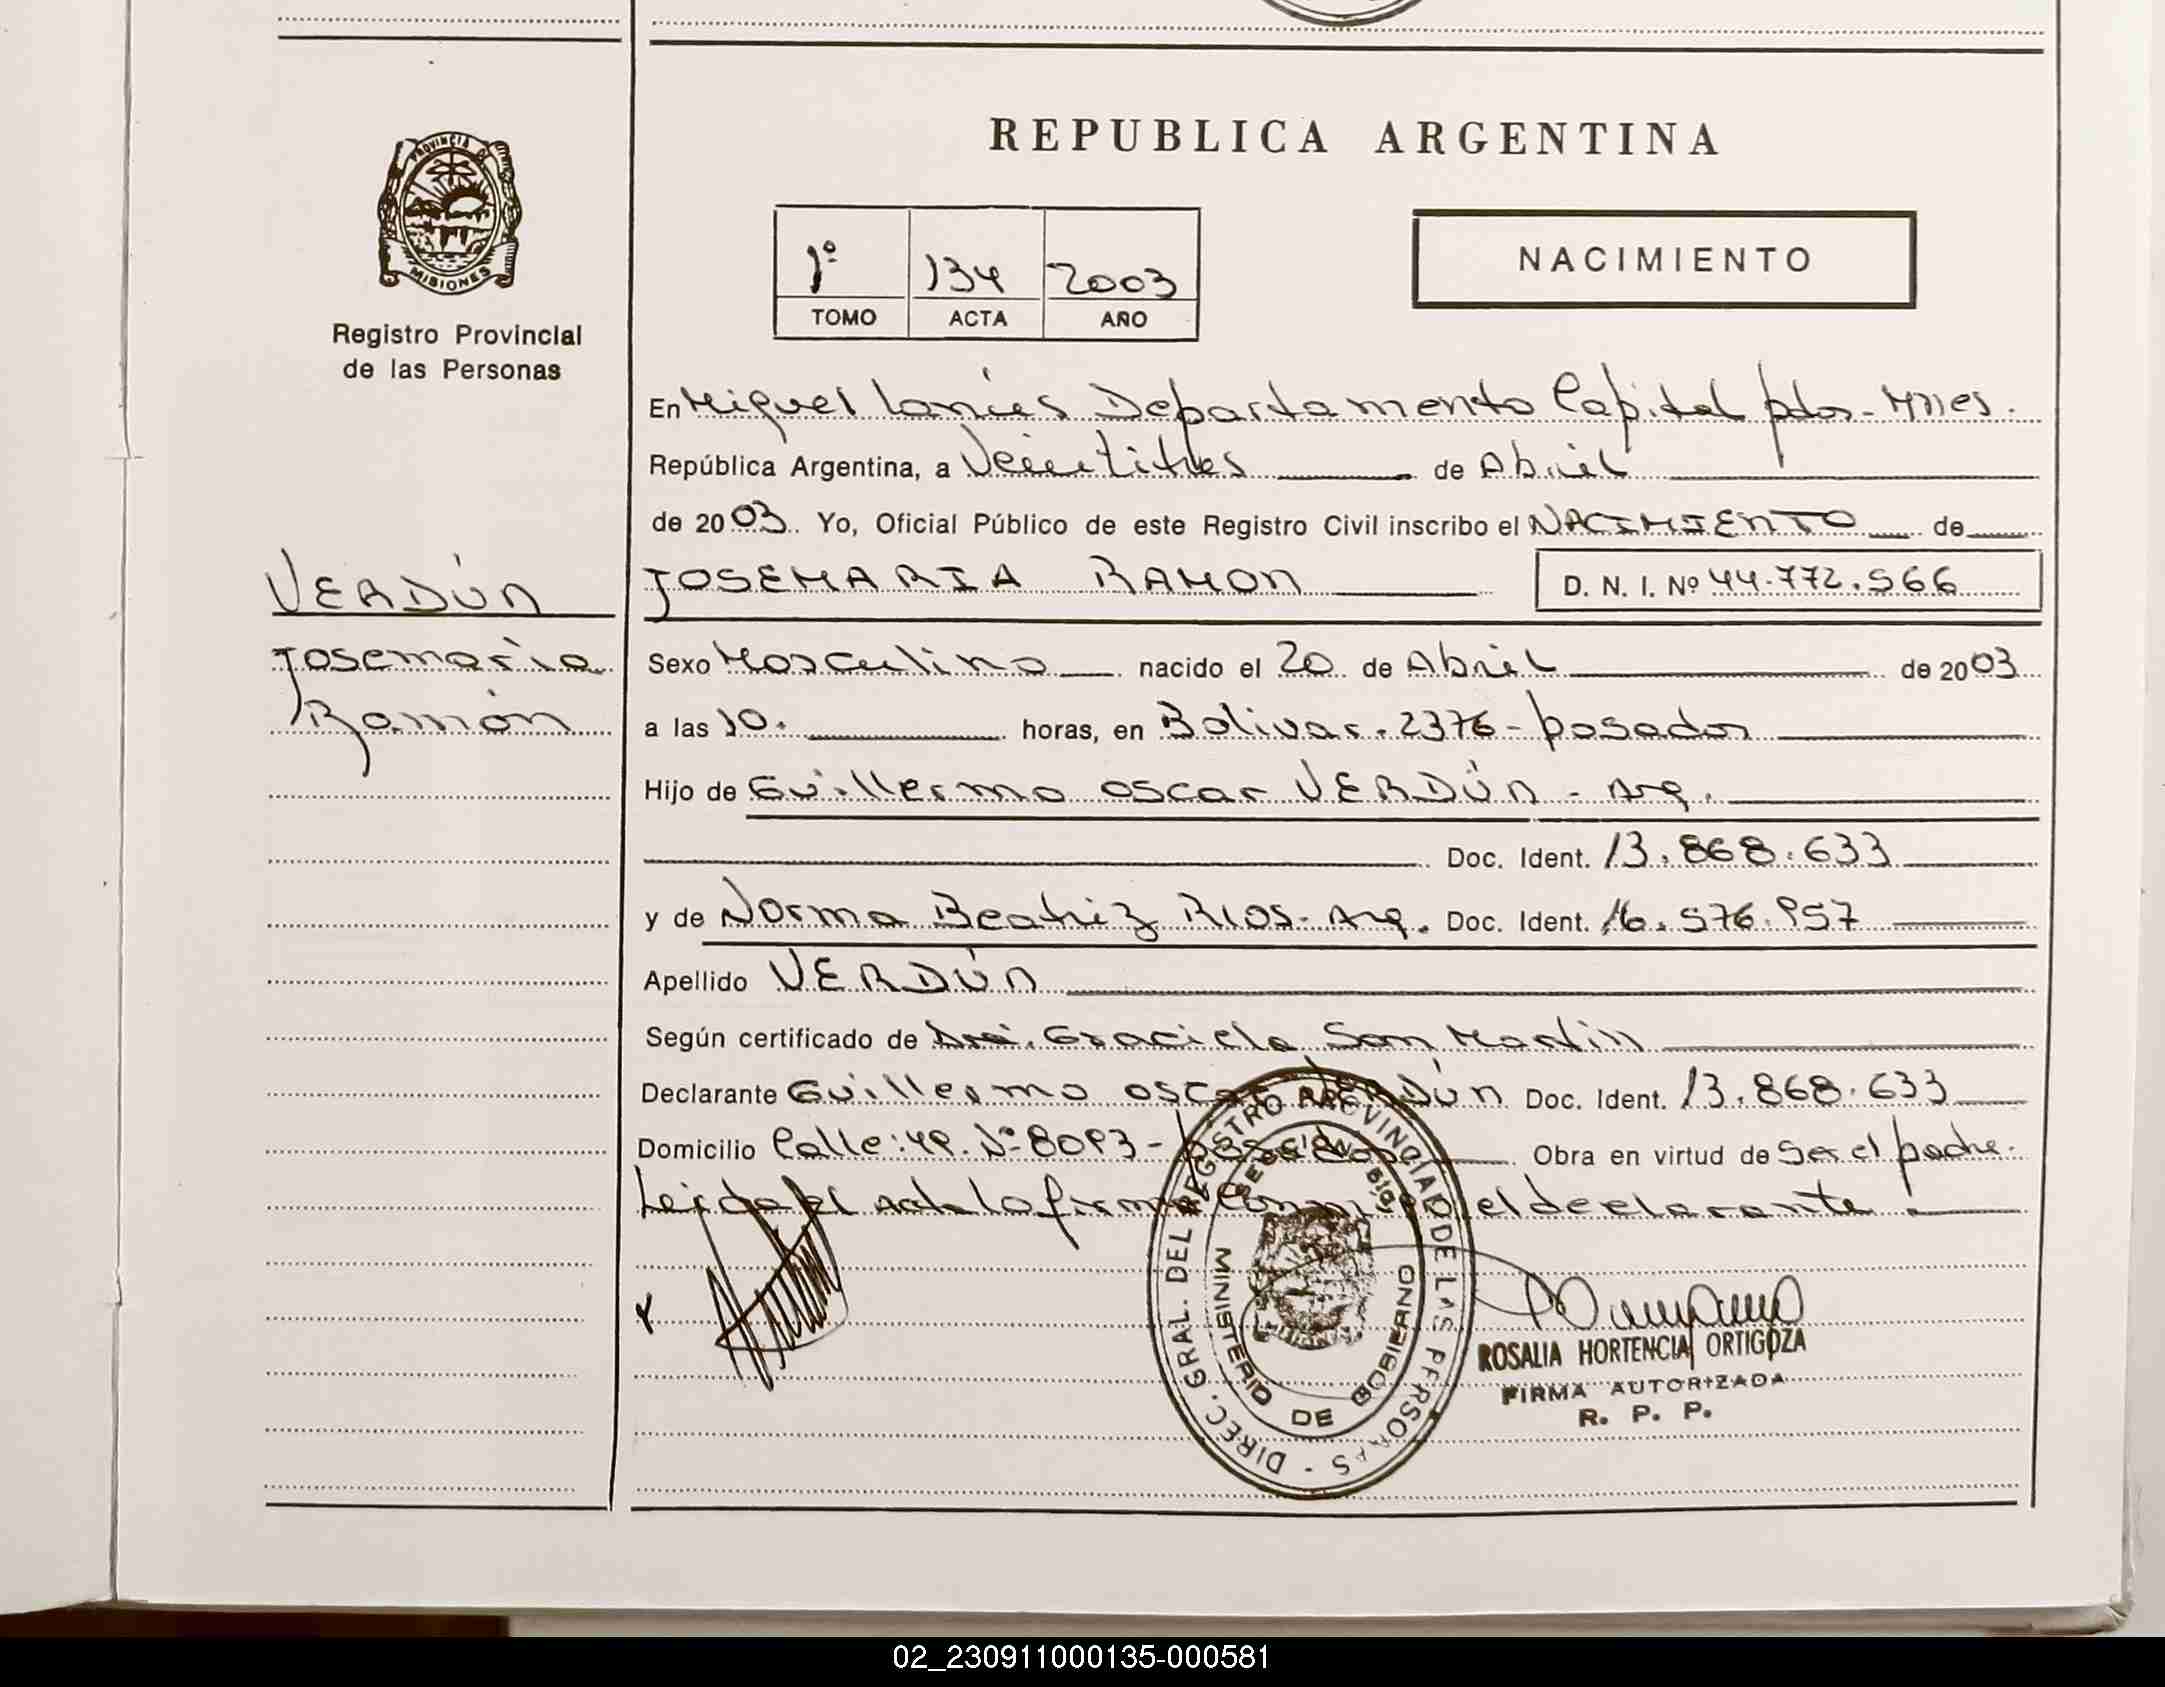 PROVINCIA DE
MISIONES
Registro Provincial
de las Personas
VERDÚN
Josemaría
Ramón
REPUBLICA ARGENTINA
1º 134 2003
TOMO ACTA AÑO
NACIMIENTO
En Miguel Lanús Departamento Capital pdas-Mnes.
República Argentina, a Veintitres de Abril
de 2003. Yo, Oficial Público de este Registro Civil inscribo el NACIMIENTO de
JOSEMARIA RAMON D. N. I. Nº 44.772.566
Sexo Masculino nacido el 20 de Abril de 2003
a las 10. horas, en Bolivar. 2376 - posadas
Hijo de Guillermo Oscar VERDÚN - Arg.
Doc. Ident. 13.868.633
y de Norma Beatriz RIOS - Arg. Doc. Ident. 16.576.957
Apellido VERDÚN
Según certificado de Dra. Graciela San Martin
Declarante Guillermo Oscar VERDÚN Doc. Ident. 13.868.633
Domicilio Calle: 49. Nº 8093 - posadas Obra en virtud de Ser el padre.
Leida el Acta la firma conmigo el declarante.
DIREC. GRAL. DEL REGISTRO PROVINCIAL DE LAS PERSONAS
MINISTERIO DE GOBIERNO
ROSALIA HORTENCIA ORTIGOZA
FIRMA AUTORIZADA
R. P. P.
02_230911000135-000581